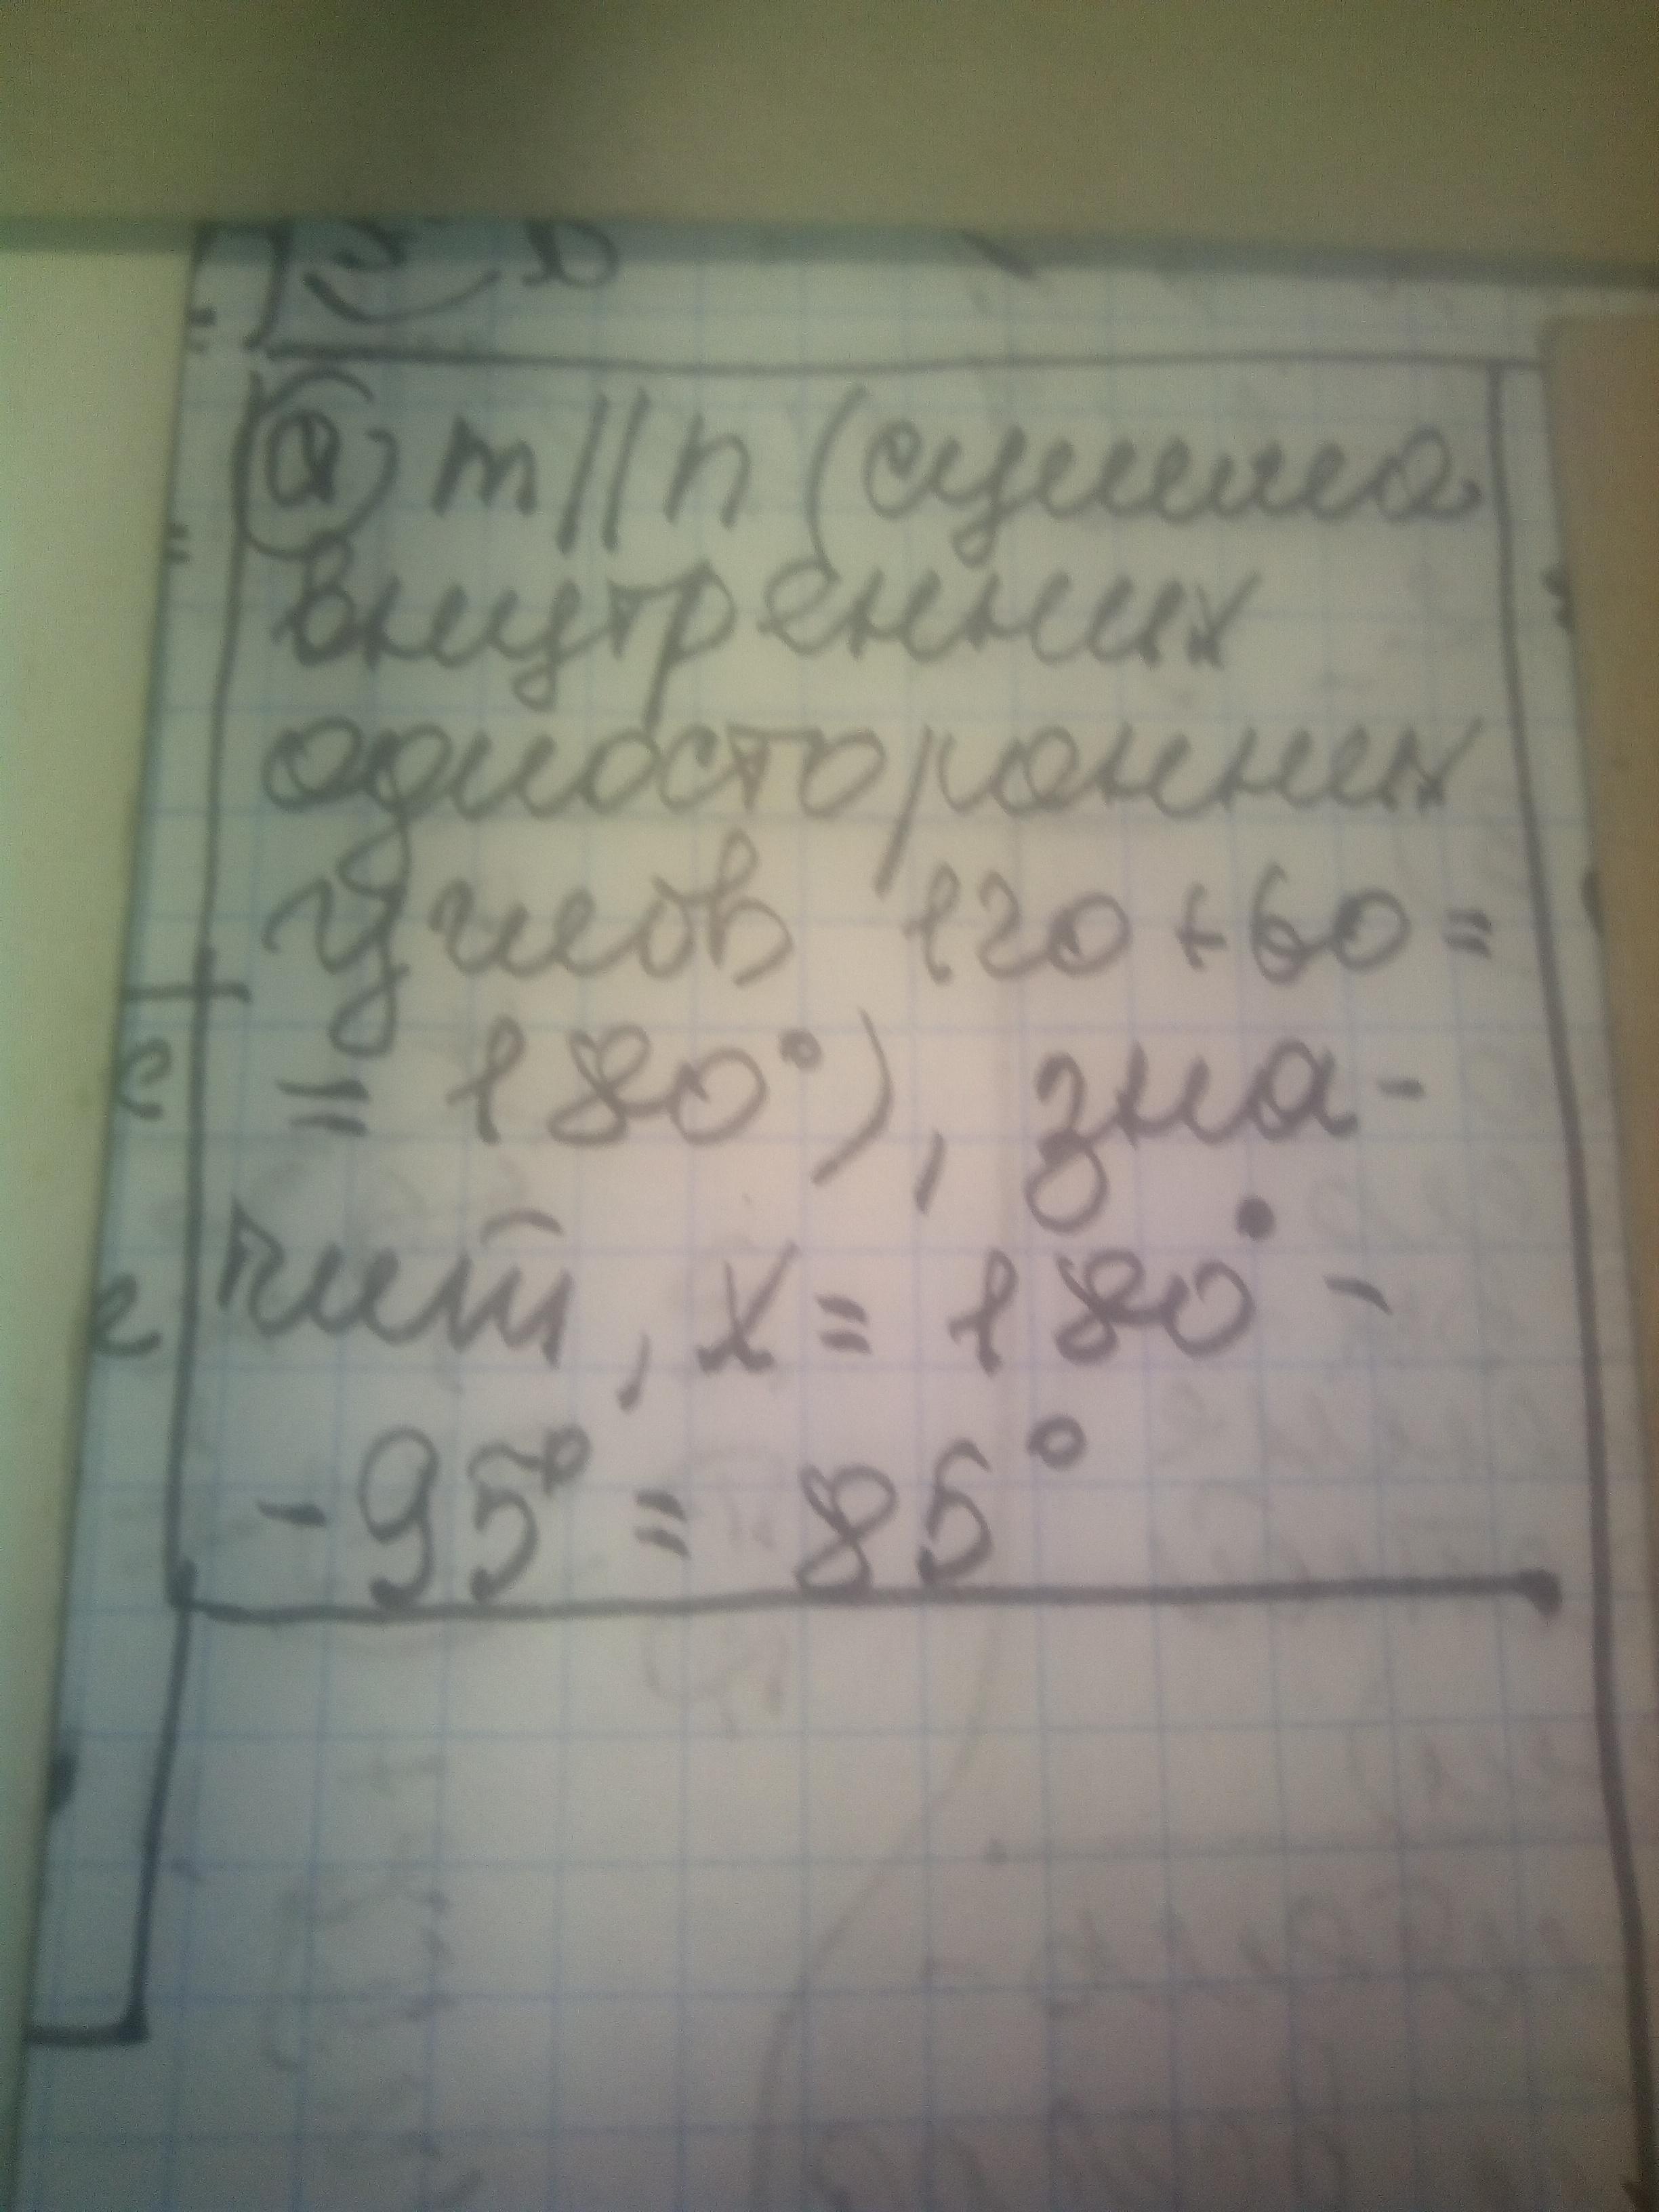 а) m || n (сумма
внутренних
односторонних
углов 120+60=
= 180°), зна-
чит, x = 180° -
- 95° = 85°